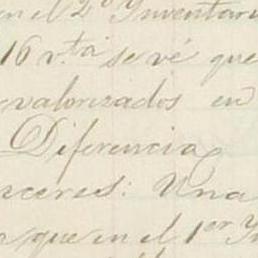 en el 2º Inventari
16 v.ta se vé que
valorizados en
Diferencia
ceres: Una
que en el 1er In